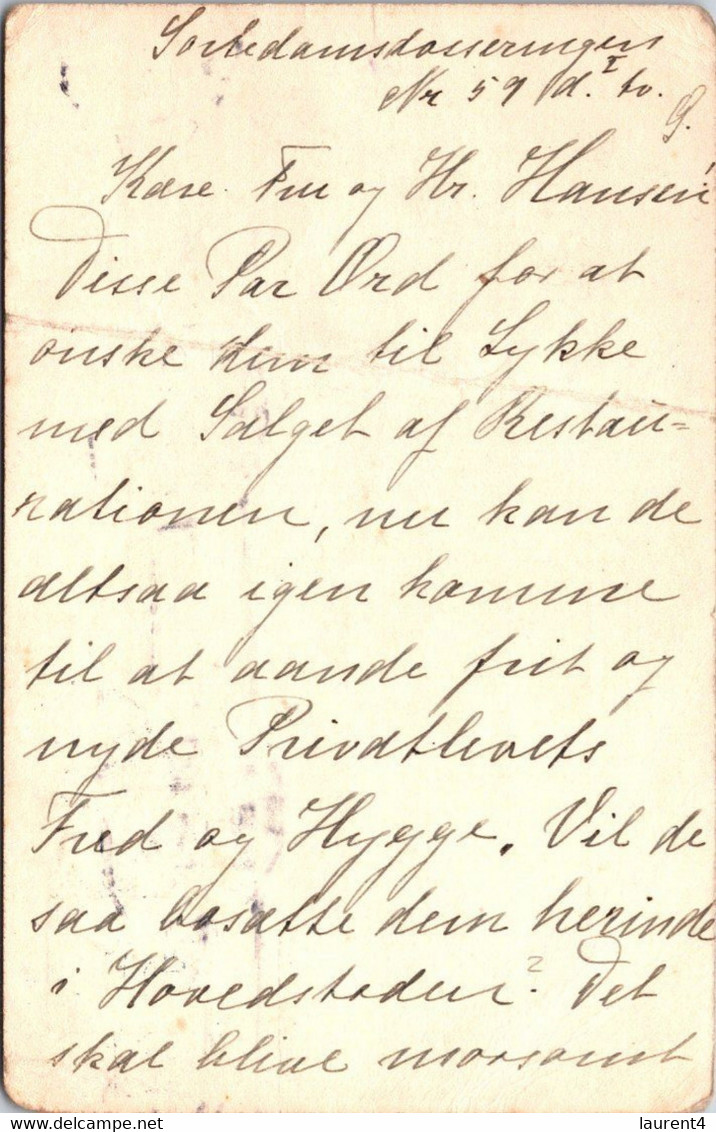 Sortedamsdosseringen
Nr 59 d. I tv.
G.
Kære Fru og Hr. Hansen!
Disse Par Ord for at
ønske dem til Lykke
med Salget af Restau=
rationen, nu kan de
altsaa igen komme
til at aande frit og
nyde Privatlivets
Fred og Hygge. Vil de
saa bosætte dem herinde
i Hovedstaden? Det
skal blive morsomt
delcampe.net
laurent4